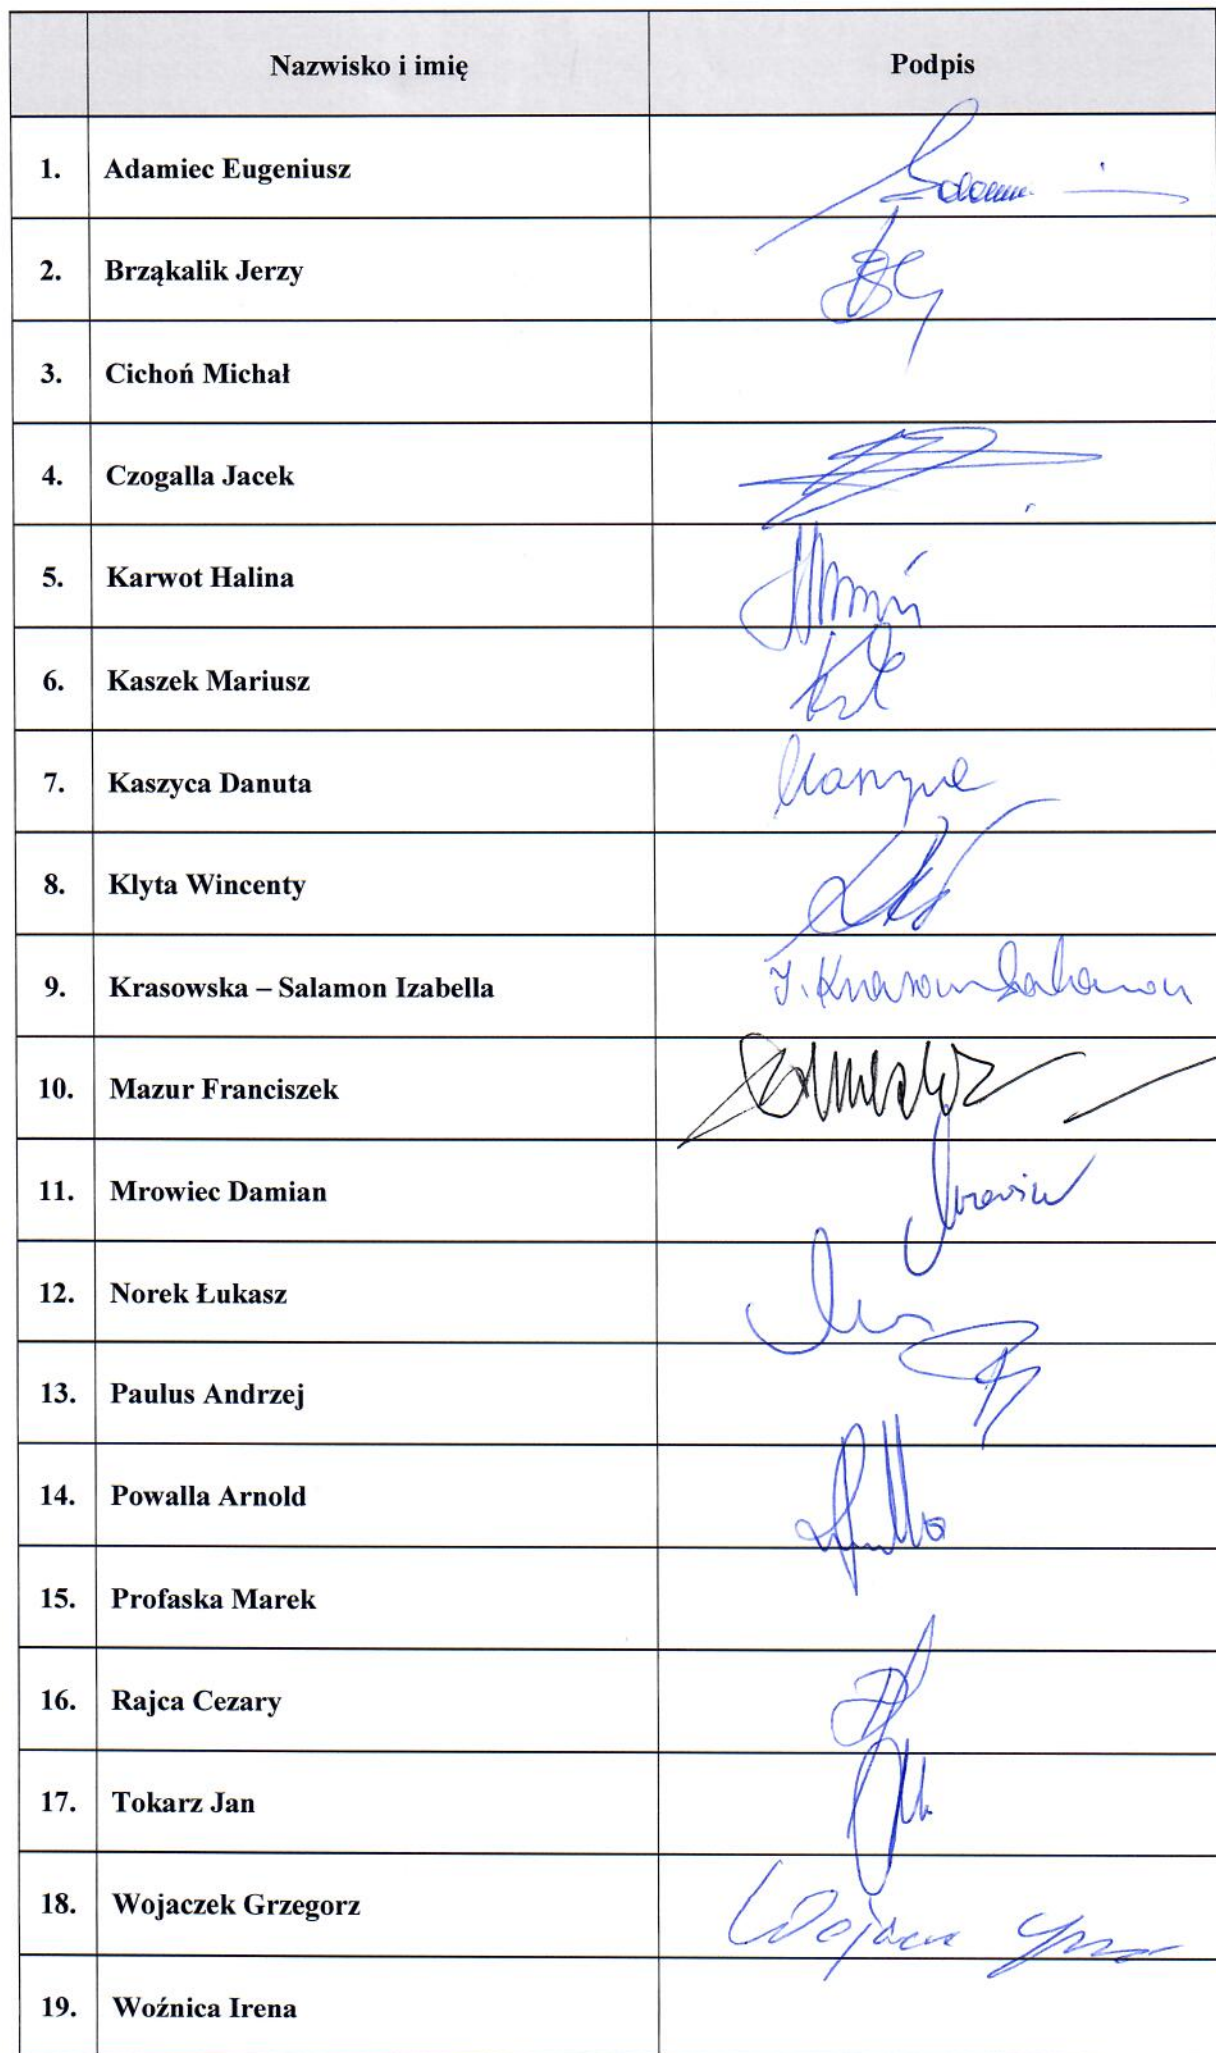 Nazwisko i imię Podpis
1. Adamiec Eugeniusz
2. Brząkalik Jerzy
3. Cichoń Michał
4. Czogalla Jacek
5. Karwot Halina
6. Kaszek Mariusz
7. Kaszyca Danuta
8. Klyta Wincenty
9. Krasowska – Salamon Izabella
10. Mazur Franciszek
11. Mrowiec Damian
12. Norek Łukasz
13. Paulus Andrzej
14. Powalla Arnold
15. Profaska Marek
16. Rajca Cezary
17. Tokarz Jan
18. Wojaczek Grzegorz
19. Woźnica Irena